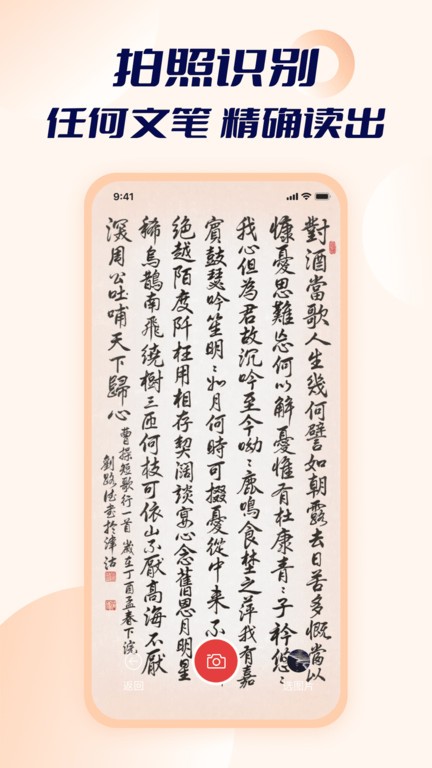 拍照识别
任何文笔 精确读出
9:41
對酒當歌人生幾何譬如朝露去日苦多慨當以
慷憂思難忘何以解憂惟有杜康青〻子衿悠〻
我心但為君故沉吟至今呦〻鹿鳴食埜之萍我有嘉
賓鼓瑟吟笙明〻如月何時可掇憂從中來不
絕越陌度阡枉用相存契闊談宴心念舊恩月明星
稀烏鵲南飛繞樹三匝何枝可依山不厭高海不厭
深周公吐哺天下歸心
曹操短歌行一首 歲在丁酉孟春下浣
劉路書於津沽
返回